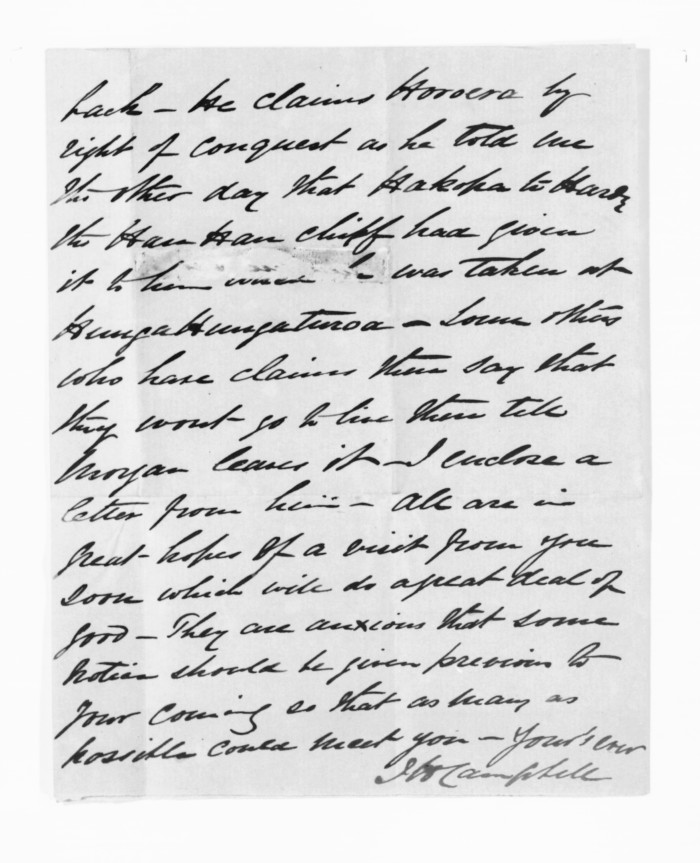 back - He claims Horoera by
right of conquest as he told me
the other day that Hakopa te Hard
the Hau Hau chiff had given
it to him when he was taken at
HungaHungatoroa - Some others
who have claims there say that
they wont go to live there till
Morgan leaves it - I enclose a
letter from him - All are in
great hopes of a visit from you
soon which will do a great deal of
good - They are anxious that some
notice should be given previous to
your coming so that as many as
possible could meet you - Your's ever
J H Campbell